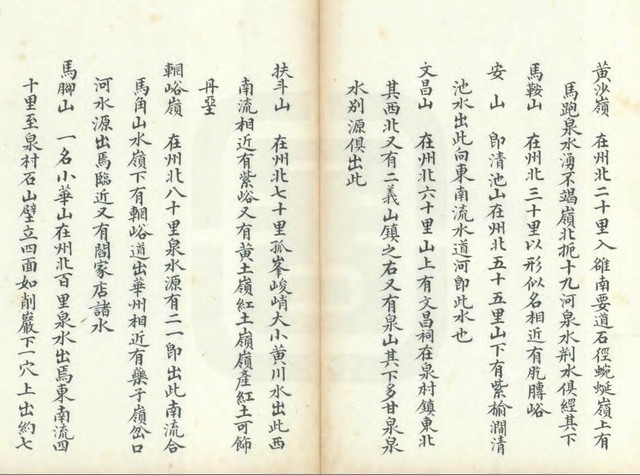 黃沙嶺　在州北二十里入雒南要道石徑蜿蜒嶺上有
馬跑泉水湧不竭嶺北扼十九河泉水荆水俱經其下
馬鞍山　在州北三十里以形似名相近有肐膊峪
安　山　即清池山在州北五十五里山下有紫榆澗清
池水出此向東南流水道河即此水也
文昌山　在州北六十里山上有文昌祠在泉村鎮東北
其西北又有二義山鎮之右又有泉山其下多甘泉泉
水別源俱出此
扶斗山　在州北七十里孤峯峻峭大小黃川水出此西
南流相近有紫峪又有黃土嶺紅土嶺嶺產紅土可飾
丹堊
輞峪嶺　在州北八十里泉水源有二一即出此南流合
馬角山水嶺下有輞峪道出華州相近有藥子嶺岔口
河水源出馬臨近又有閻家店諸水
馬腳山　一名小華山在州北百里泉水出馬東南流四
十里至泉村石山壁立四面如削巖下一穴上出約七